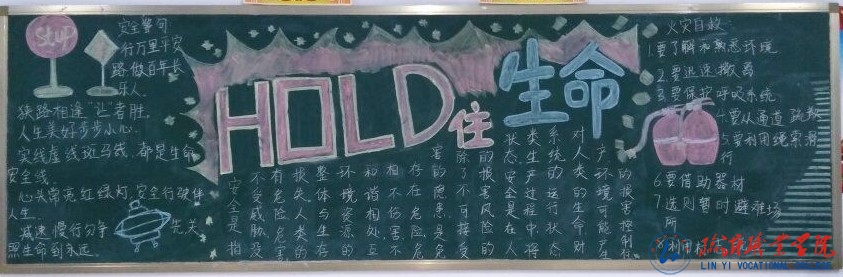 STOP
安全警句
行万里平安
路做百年长
乐人.
狭路相逢"让"者胜.
人生美好步步小心.
实线虚线斑马线都是生命
安全线.
心头常亮红绿灯,安全行驶伴
人生.
减速慢行勿争
先关
照生命到永远.
HOLD住生命
安全是指
不受威胁没
有危险危害
损失人类的
整体与生存
环境资源的
和谐相处互
相不伤害不
存在危险危
害的隐患是免
除了不可接受
的损害风险的
状态安全是在人
类生产过程中将
系统的运行状态
对人类的生命财
产环境可能产生
的损害控制在
火灾自救:
1.要了解和熟悉环境
2.要迅速撤离
3.要保护呼吸系统
4.要从通道疏散
5.要利用绳索滑
行
6.要借助器材
7.选则暂时避难场
所
8.利用
LIN YI VOCATIONAL